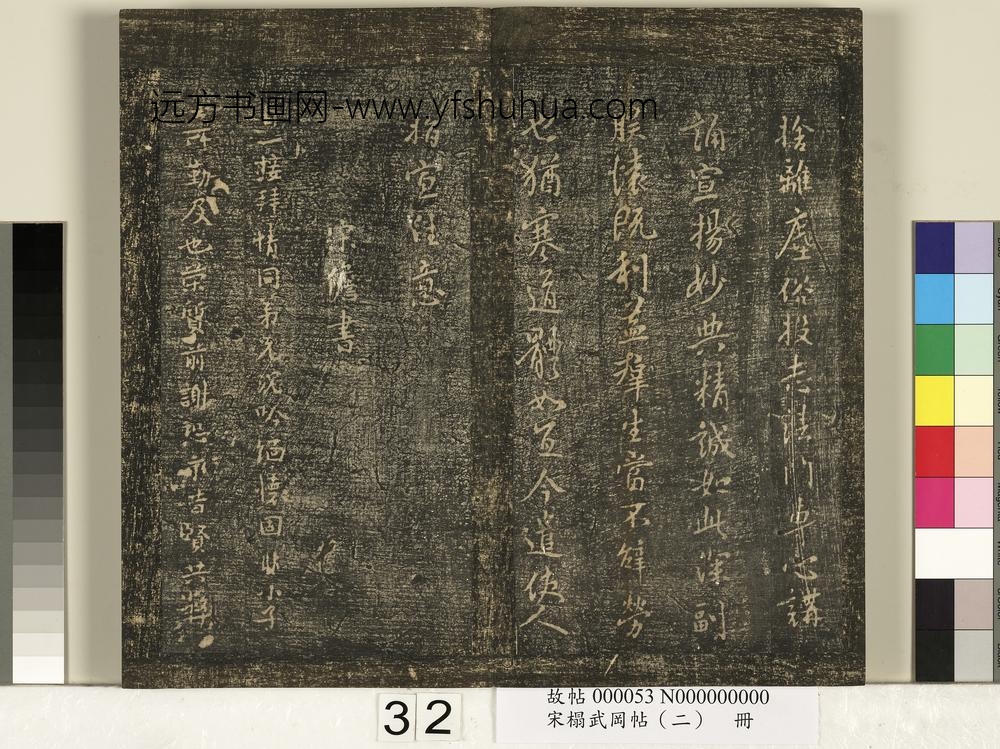 远方书画网-www.yfshuhua.com
捨離塵俗投志法門專心講
誦宣揚妙典精誠如此深副
朕懷既利益群生當不辭勞
也猶寒道體如宜今遣使人
指宣往意
書
二 接拜情同弟兄沈吟 懷固非小子
勤及也 質前謝恐 昔賢共
32
故帖 000053 N000000000
宋榻武岡帖（二） 冊